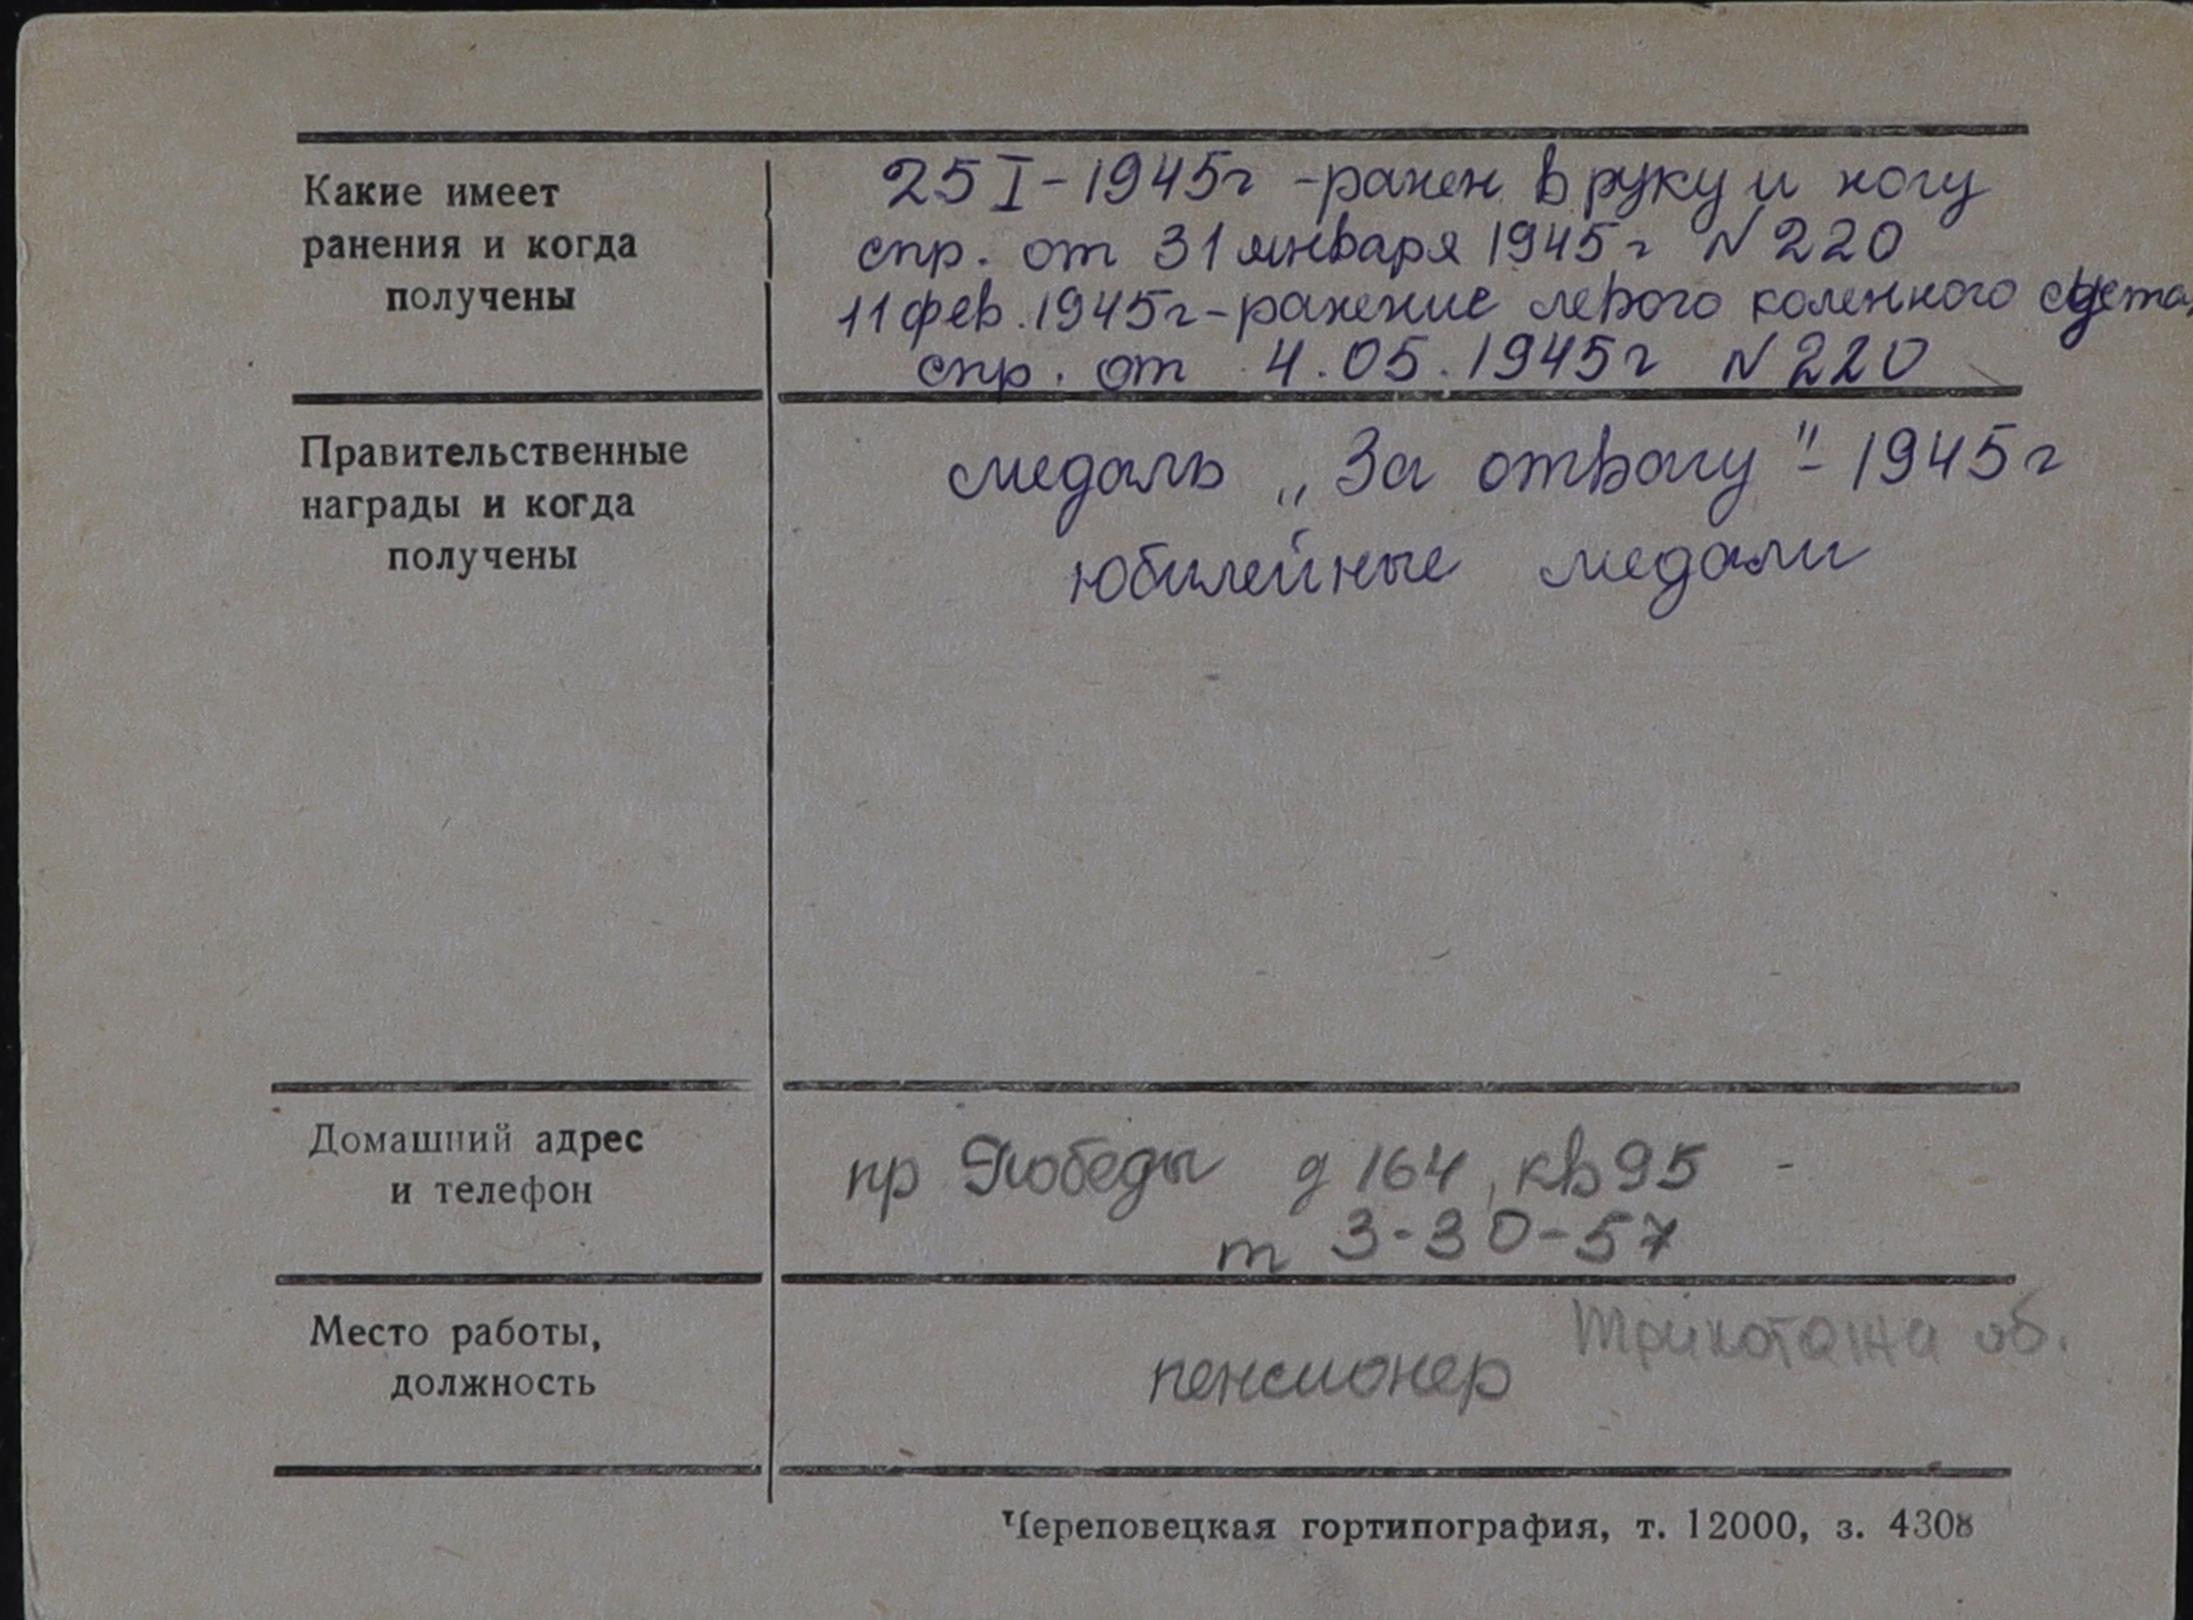 Какие имеет
ранения и когда
получены
25 I - 1945г - ранен в руку и ногу
спр. от 31 января 1945г N 220
11 фев. 1945г - ранение левого коленного
спр. от 4.05.1945г N 220
Правительственные
награды и когда
получены
медаль „За отвагу" - 1945г
юбилейные медали
Домашний адрес
и телефон
пр Победы д 164, кв 95 -
т 3-30-57
Место работы,
должность
Трикотажа об.
пенсионер
Череповецкая гортипография, т. 12000, з. 4308